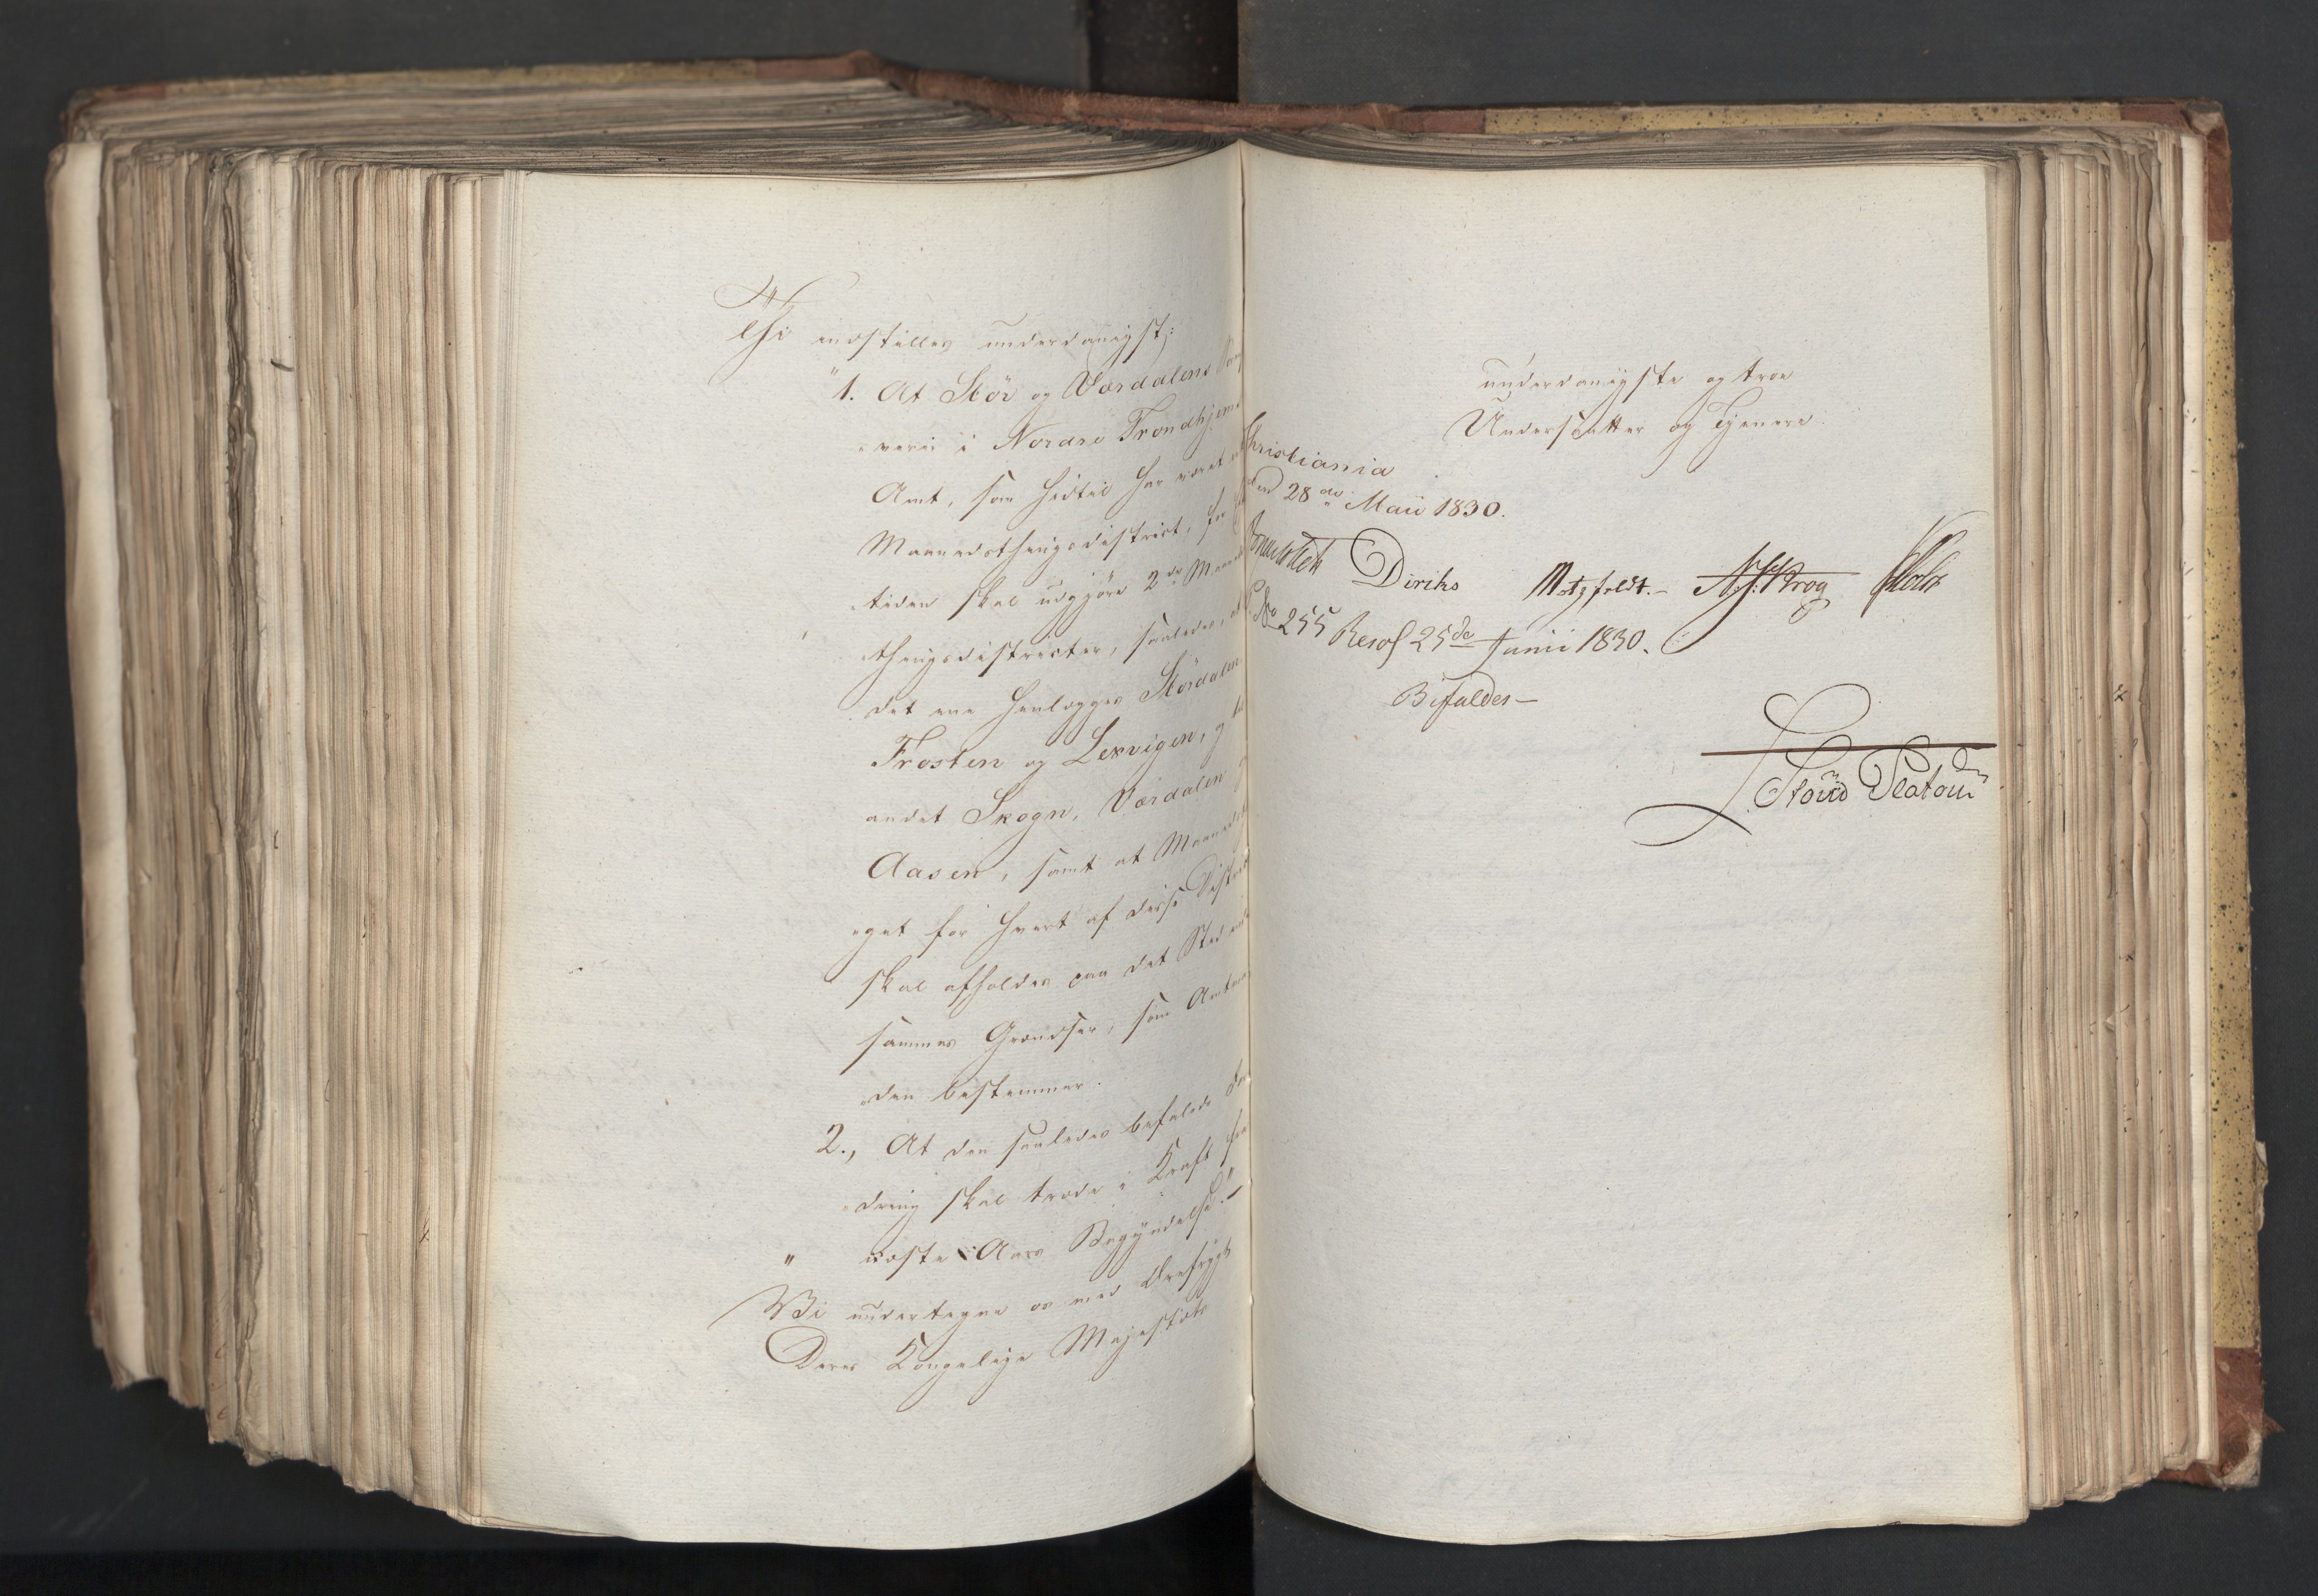 Thi indstilles underdanigst:
"1. At Stör og Værdalens
verie i Nordre Trondhjems
Amt, som hidtil har været
Maanedsthingsdistrict, for
tiden skal udgjöre 2de Maaneds
thingsdistricter, saaledes, at
det ene henlægges Stördalen
Frosten og Lexvigen, og
andet Skogn, Værdalen og
Aasen, samt at Maaneds
get for hvert af disse District
skal afholdes paa det Sted
sammes Grændser, som Amtman
den bestemmer.
2., At den saaledes befalede
dring skal træde i Kraft fra
" næste Aars Begyndelse."
Vi undertegne os med Ærefrygt
Deres Kongelige Majestæts
underdanigste og troe
Undersaatter og Tjenere
Christiania
den 28de Maii 1830.
Diriks Motzfeldt. Krog
No 255 Resol 25de Junii 1830.
Bifaldes—